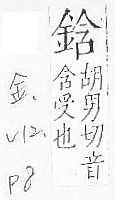 鋡
胡男切音
含受也
金.
V12.
P8